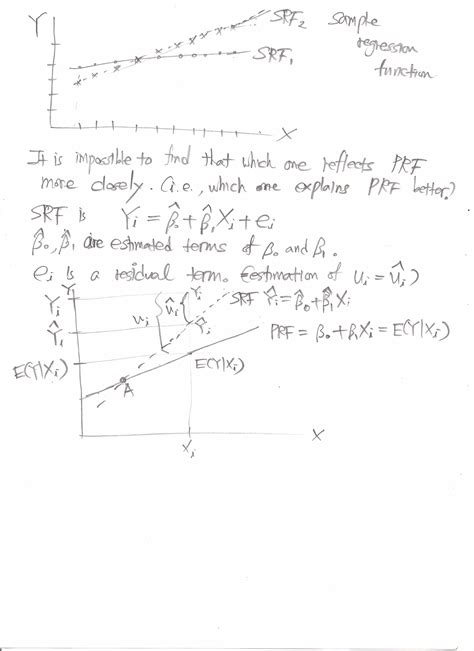 Y
SRF₂ sample
regression
SRF₁
function
X
It is impossible to find that which one reflects PRF
more closely. (i.e., which one explains PRF better?)
SRF is Yᵢ = β̂₀ + β̂₁Xᵢ + eᵢ
β̂₀, β̂₁ are estimated terms of β₀ and β₁.
eᵢ is a residual term. (estimation of uᵢ = ûᵢ)
Y
Yᵢ
Yᵢ
uᵢ
ûᵢ
SRF Ŷᵢ = β̂₀ + β̂₁Xᵢ
Ŷᵢ
Ŷᵢ
PRF = β₀ + β₁Xᵢ = E(Y|Xᵢ)
E(Y|Xᵢ)
E(Y|Xᵢ)
A
Xᵢ
X